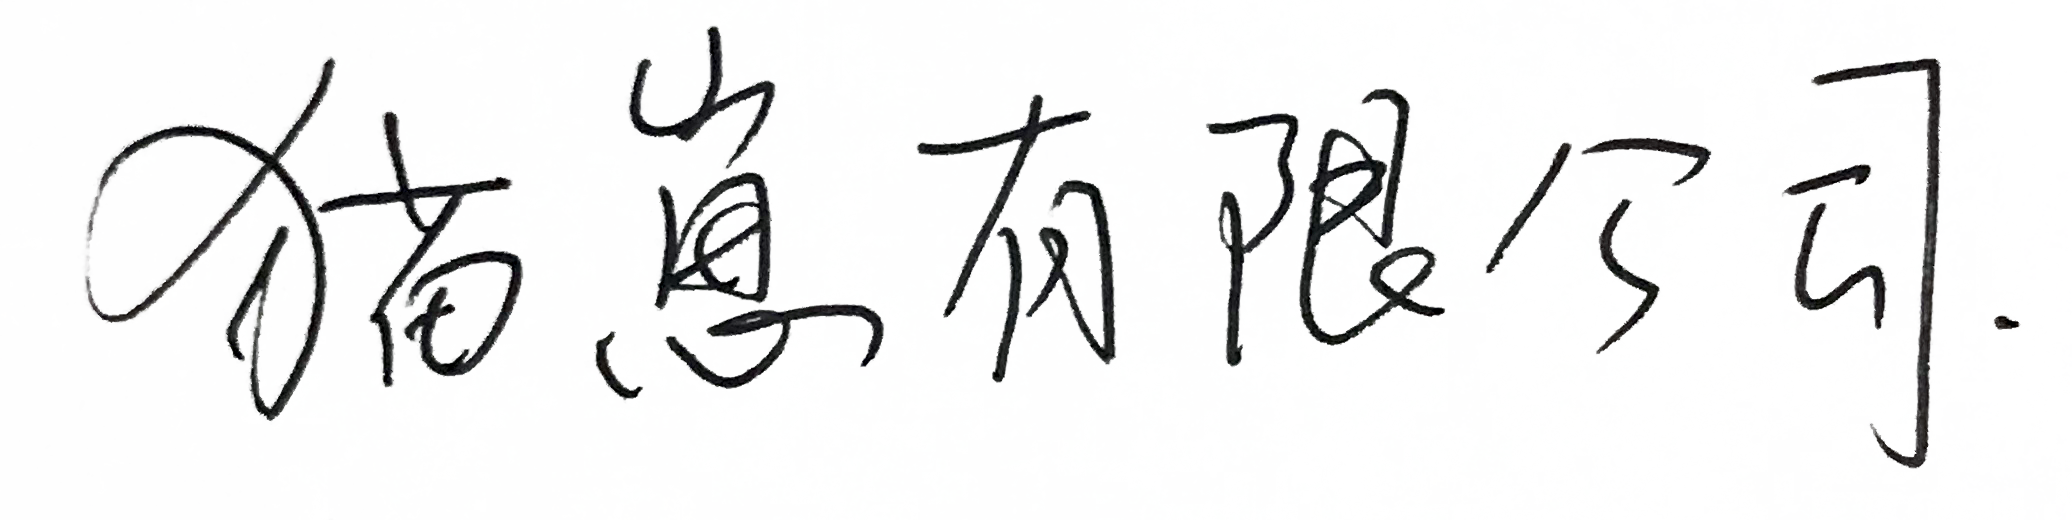 猫崽有限公司.